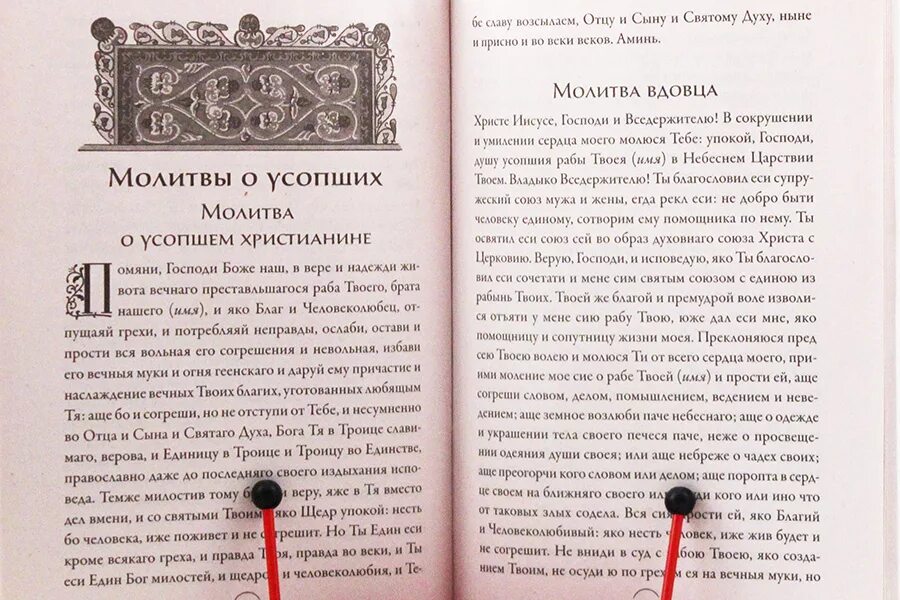 Молитвы о усопших
Молитва
о усопшем христианине
Помяни, Господи Боже наш, в вере и надежди жи-
вота вечнаго преставльшагося раба Твоего, брата
нашего (имя), и яко Благ и Человеколюбец, от-
пущаяй грехи, и потребляяй неправды, ослаби, остави и
прости вся вольная его согрешения и невольная, избави
его вечныя муки и огня геенскаго и даруй ему причастие и
наслаждение вечных Твоих благих, уготованных любящым
Тя: аще бо и согреши, но не отступи от Тебе, и несумненно
во Отца и Сына и Святаго Духа, Бога Тя в Троице слави-
маго, верова, и Единицу в Троице и Троицу во Единстве,
православно даже до последняго своего издыхания испо-
веда. Темже милостив тому веру, яже в Тя вместо
дел вмени, и со святыми Твоим яко Щедр упокой: несть
бо человека, иже поживет и не согрешит. Но Ты Един еси
кроме всякаго греха, и правда Твоя, правда во веки, и Ты
еси Един Бог милостей, и щедрот и человеколюбия, и Те-
бе славу возсылаем, Отцу и Сыну и Святому Духу, ныне
и присно и во веки веков. Аминь.
Молитва вдовца
Христе Иисусе, Господи и Вседержителю! В сокрушении
и умилении сердца моего молюся Тебе: упокой, Господи,
душу усопшия рабы Твоея (имя) в Небеснем Царствии
Твоем. Владыко Вседержителю! Ты благословил еси супру-
жеский союз мужа и жены, егда рекл еси: не добро быти
человеку единому, сотворим ему помощника по нему. Ты
освятил еси союз сей во образ духовнаго союза Христа с
Церковию. Верую, Господи, и исповедую, яко Ты благосло-
вил еси сочетати и мене сим святым союзом с единою из
рабынь Твоих. Твоей же благой и премудрой воле изволи-
ся отъяти у мене сию рабу Твою, юже дал еси мне, яко
помощницу и сопутницу жизни моея. Преклоняюся пред
сею Твоею волею и молюся Ти от всего сердца моего, при-
ими моление мое сие о рабе Твоей (имя) и прости ей, аще
согреши словом, делом, помышлением, ведением и неве-
дением; аще земное возлюби паче небеснаго; аще о одежде
и украшении тела своего печеся паче, неже о просвеще-
нии одеяния души своея; или аще небреже о чадех своих;
аще преогорчи кого словом или делом; аще поропта в серд-
це своем на ближняго своего или кого или ино что
от таковых злых содела. Вся сия прости ей, яко Благий
и Человеколюбивый: яко несть человек, иже жив будет и
не согрешит. Не вниди в суд с рабою Твоею, яко созда-
нием Твоим, не осуди ю по грехом ея на вечныя муки, но